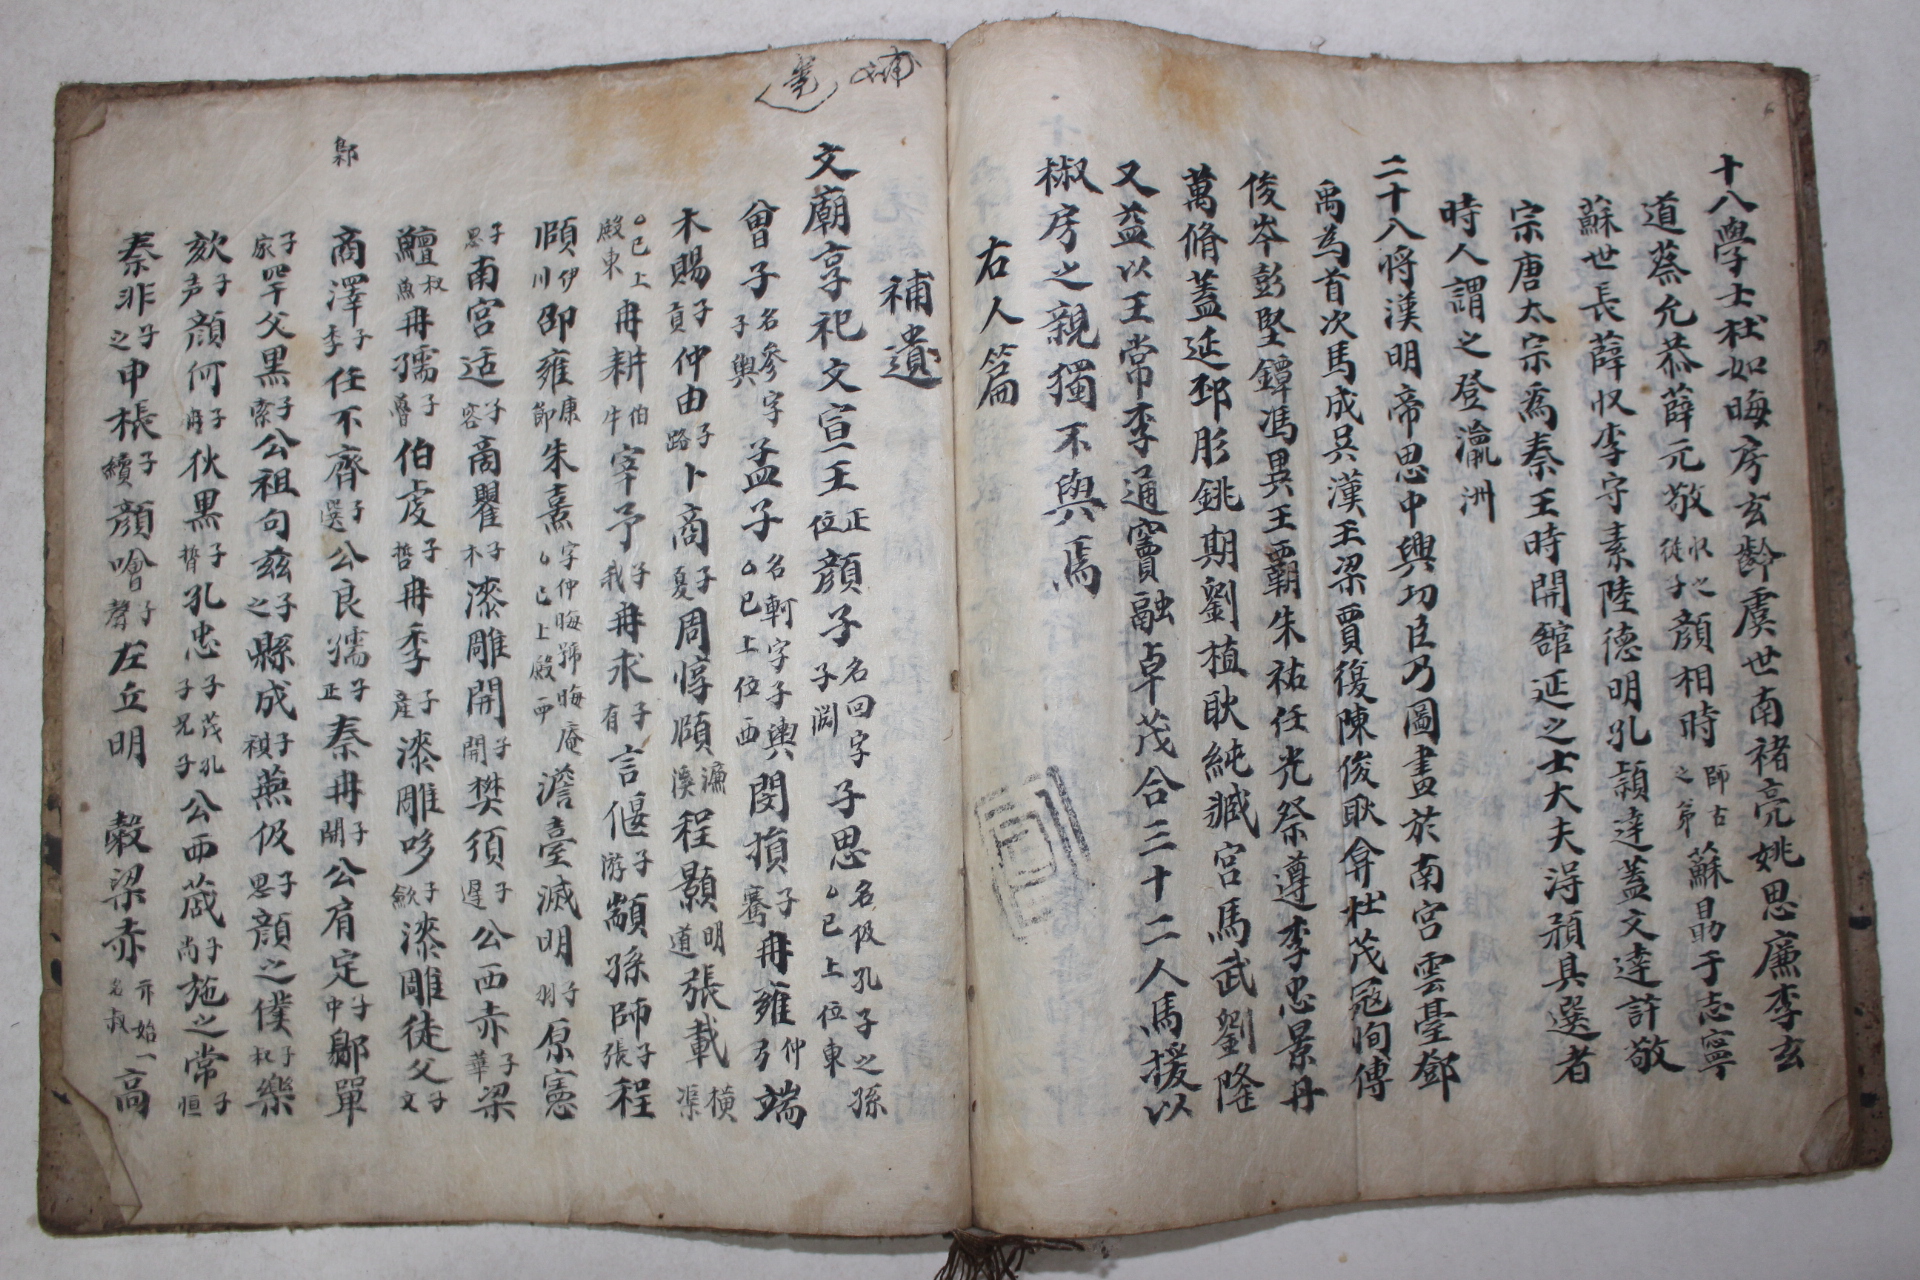 十八學士杜如晦房玄齡虞世南褚亮姚思廉李玄
道蔡允恭薛元敬收之從子顔相時師古之弟蘇勗于志寧
蘇世長薛收李守素陸德明孔穎達蓋文達許敬
宗唐太宗爲秦王時開舘延之士大夫淂預其選者
時人謂之登瀛洲
二十八將漢明帝思中興功臣乃圖畫於南宮雲臺鄧
禹為首次馬成吳漢王梁賈復陳俊耿弇杜茂寇恂傅
俊岑彭堅鐔馮異王覇朱祐任光祭遵李忠景丹
萬脩蓋延邳彤銚期劉植耿純臧宮馬武劉隆
又益以王常李通竇融卓茂合三十二人馬援以
椒房之親獨不與焉
右人篇
補
遺
補遺
文廟享祀文宣王正位顔子名回字子淵子思名伋孔子之孫已上位東
曾子名參字子輿孟子名軻字子輿已上位西閔損子騫冉雍仲弓端
木賜子貢仲由子路卜商子夏周惇頤濂溪程顥明道張載橫渠
已上殿東冉耕伯牛宰予子我冉求子有言偃子游顓孫師子張程
頤伊川邵雍康節朱熹字仲晦號晦庵已上殿西澹臺滅明子羽原憲
子思南宮适子容高瞿子木漆雕開子開樊須子遲公西赤子華梁
鱣叔魚冉孺子魯伯虔子哲冉季子產漆雕哆子斂漆雕徒父子文
鄡
商澤子季任不齊子選公良孺子正秦冉子開公肩定子中鄡單
子家罕父黑子索公祖句玆子之縣成子祺燕伋子思顔之僕子叔樂
欬子声顔何子冉狄黒子晳孔忠子茂孔子兄子公西蒧子尚施之常子恒
秦非子之申棖子續顔噲子聲左丘明 穀梁赤亦始一名叔高